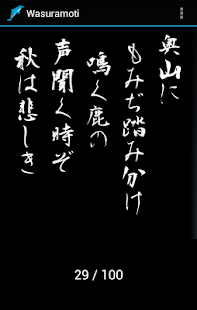 Wasuramoti
奥山に
もみぢ踏み分け
鳴く鹿の
声聞く時ぞ
秋は悲しき
29 / 100